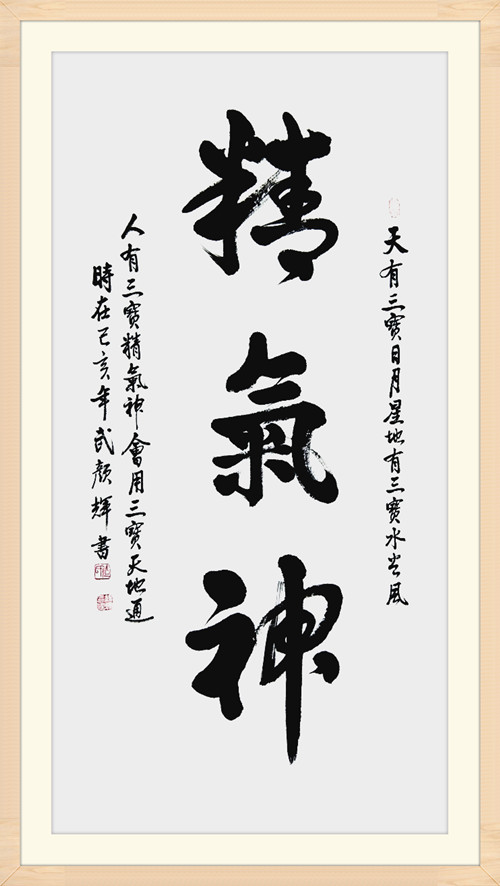 天有三寶日月星地有三寶水火風
精氣神
人有三寶精氣神會用三寶天地通
時在己亥年武顏輝書